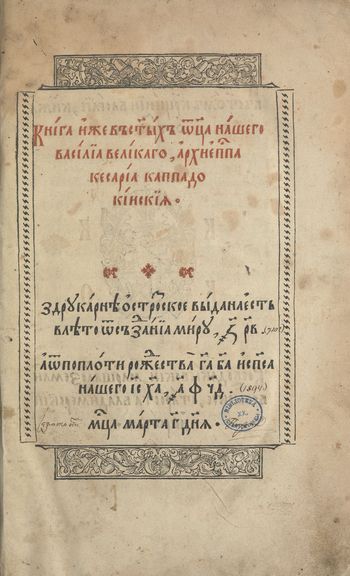 Книга иже въ ст҃ыхъ ѿц҃а нашего
василїа великаго, архиеп҃па
кесарїа каппадо
кїискїѧ.
З друкарнѣ острозское выдана естъ
в лѣто ѿ създанїа миру, ҂зр҃в
а ѿ поплоти рожества г҃а б҃а и сп҃са
нашего і҃с х҃а, ҂а ф ч҃д. (1594)
мс҃ца марта г҃ дн҃ѧ.